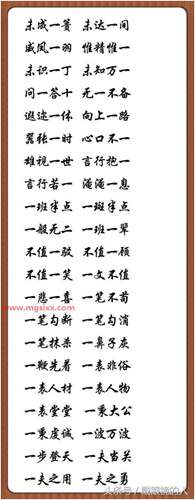 未成一篑 未达一间
威凤一羽 惟精惟一
未识一丁 未知万一
问一答十 无一不备
遐迩一体 向上一路
嚣张一时 心口不一
雄视一世 言行抱一
言行若一 淹淹一息
一班半点 一斑半点
一般无二 一班一辈
不值一驳 不值一顾
不值一笑 一文不值
一悲一喜 一笔不苟
一笔勾断 一笔勾消
一笔抹杀 一鼻子灰
一鞭先着 一表非俗
一表人材 一表人物
一表堂堂 一秉大公
一秉虔诚 一波万波
一步登天 一夫当关
一夫之用 一夫之勇
www.mgsixx.com
头条号